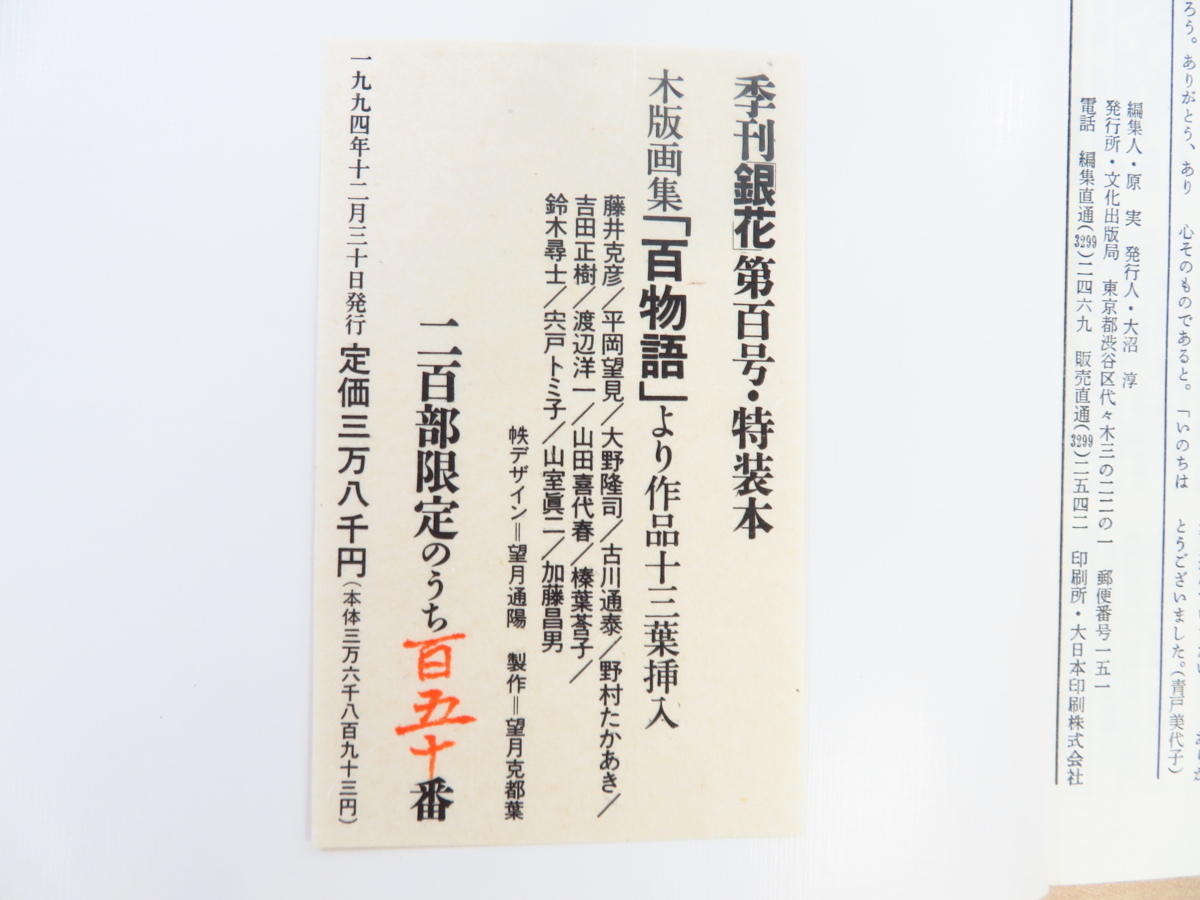 ろう。ありがとう、あり
心そのものであると。「いのちは
とうございました。(青戸美代子)
編集人・原 実 発行人・大沼 淳
発行所・文化出版局 東京都渋谷区代々木三の二二の一 郵便番号一五一
電話 編集直通(3299)二四六九 販売直通(3299)二五四二 印刷所・大日本印刷株式会社
季刊「銀花」第百号・特装本
木版画集「百物語」より作品十三葉挿入
藤井克彦/平岡望見/大野隆司/古川通泰/野村たかあき/
吉田正樹/渡辺洋一/山田喜代春/榛葉莟子/
鈴木尋士/宍戸トミ子/山室眞二/加藤昌男
帙デザイン=望月通陽 製作=望月克都葉
二百部限定のうち百五十番
一九九四年十二月三十日発行 定価三万八千円(本体三万六千八百九十三円)